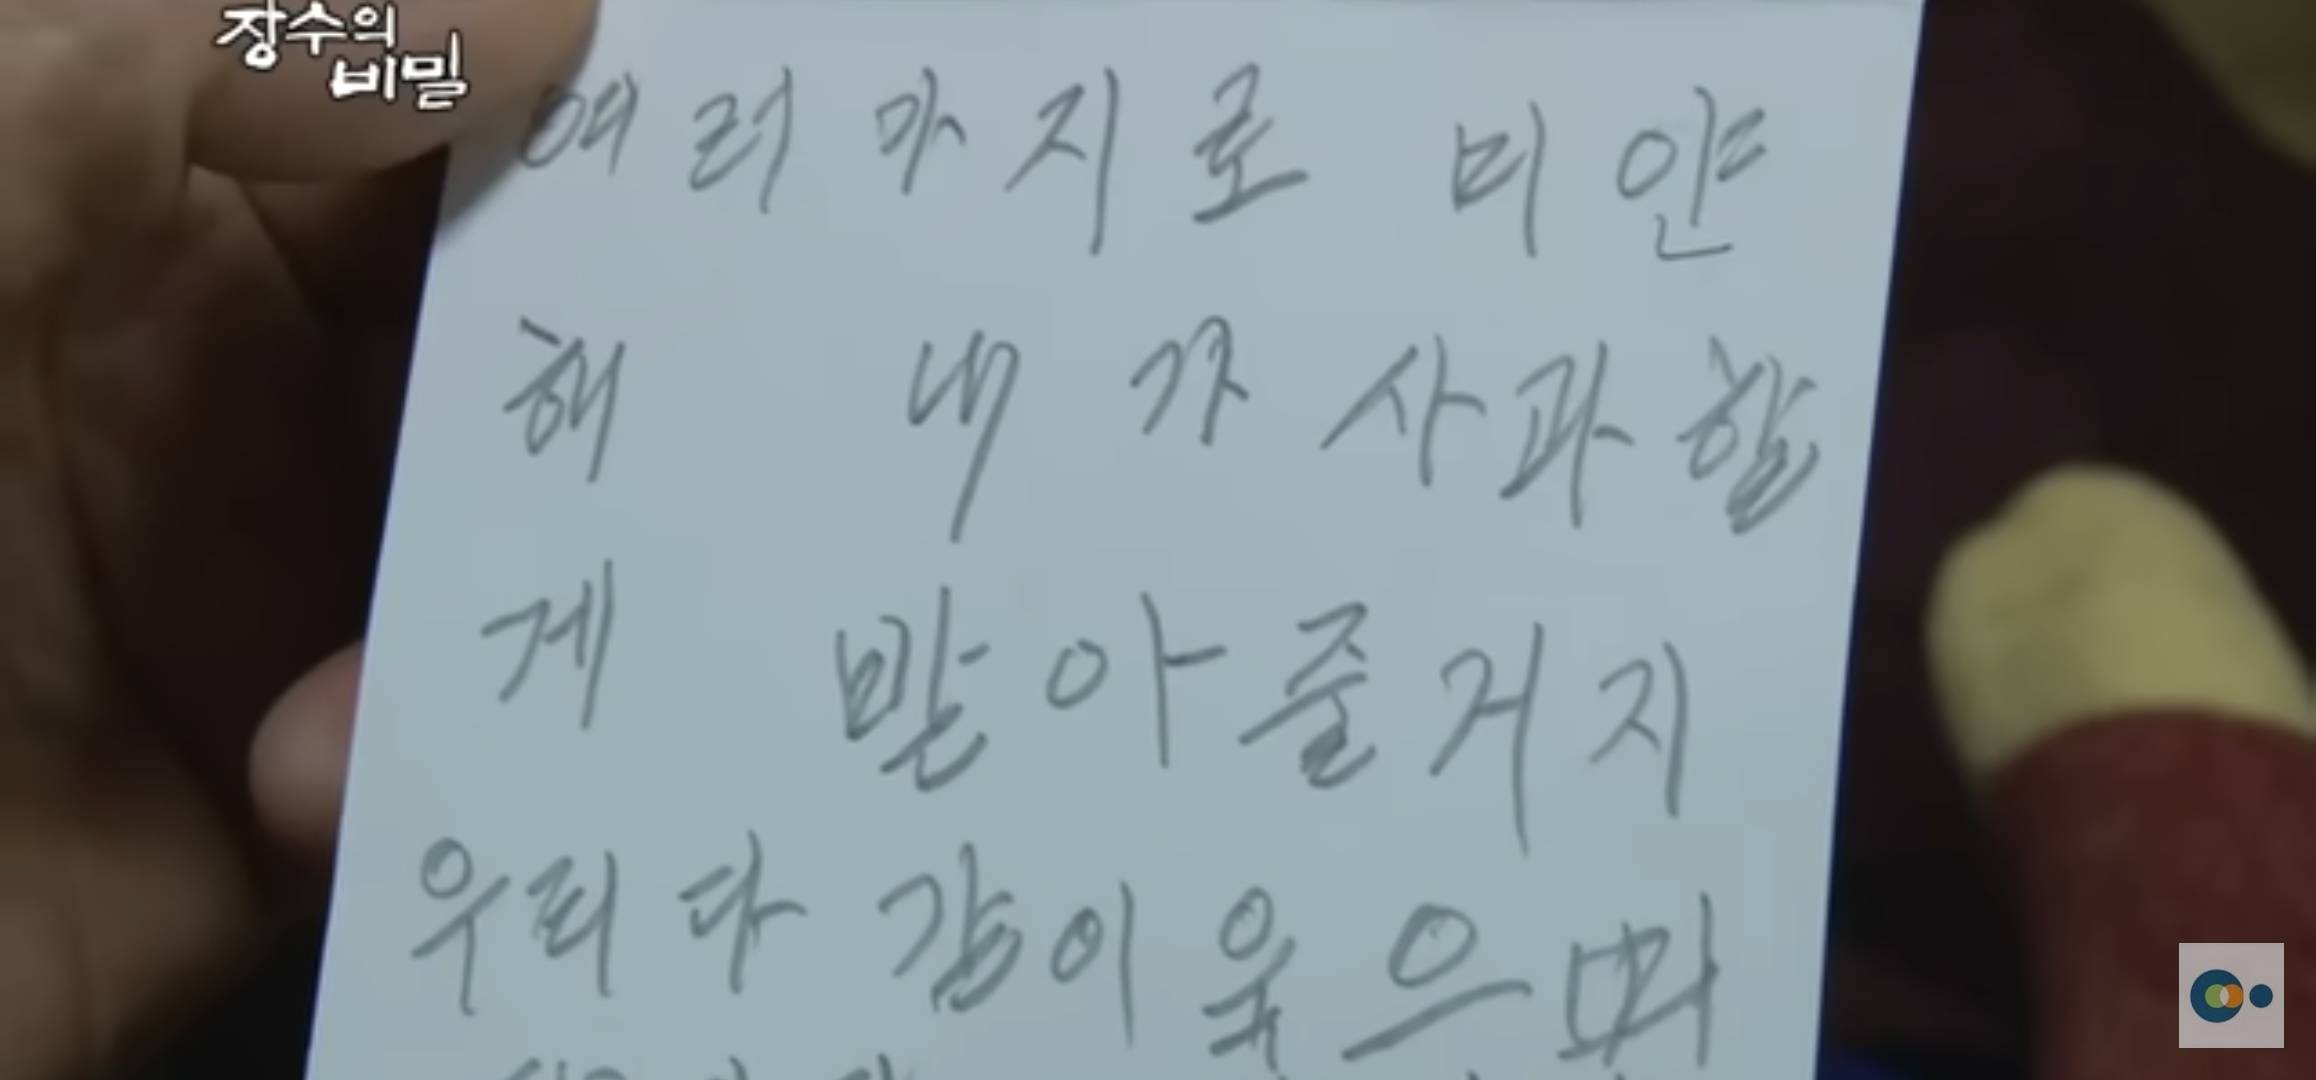 장수의
비밀
여러가지로 미얀
해 내가 사과할
게 받아줄거지
우리다 같이 웃으며